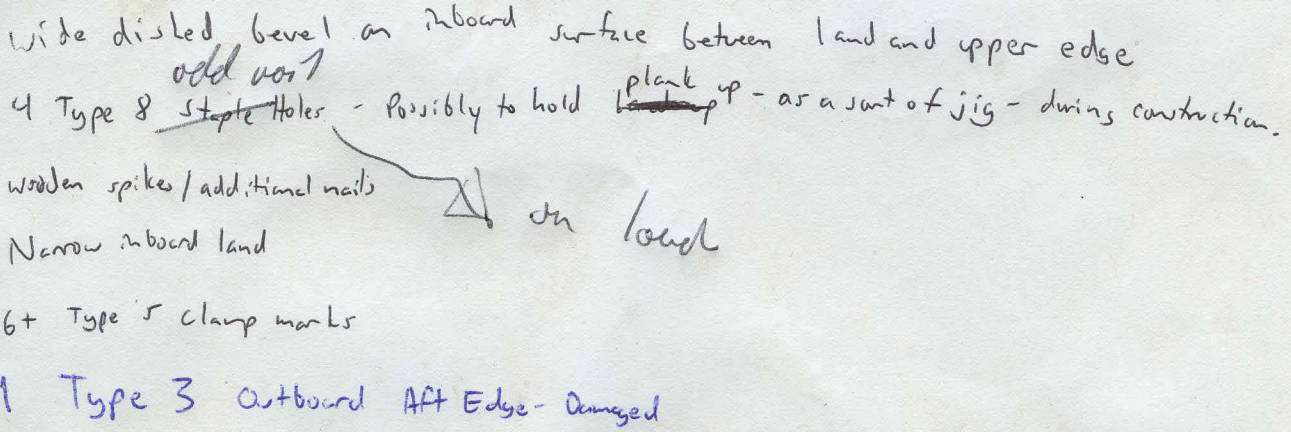 wide dished bevel on inboard surface between land and upper edge
odd nail
plank
4 Type 8 Staple Holes - Possibly to hold up - as a sort of jig - during construction.
wooden spikes/additional nails
on land
Narrow inboard land
6+ Type 5 clamp marks
1 Type 3 Outboard Aft Edge - Damaged